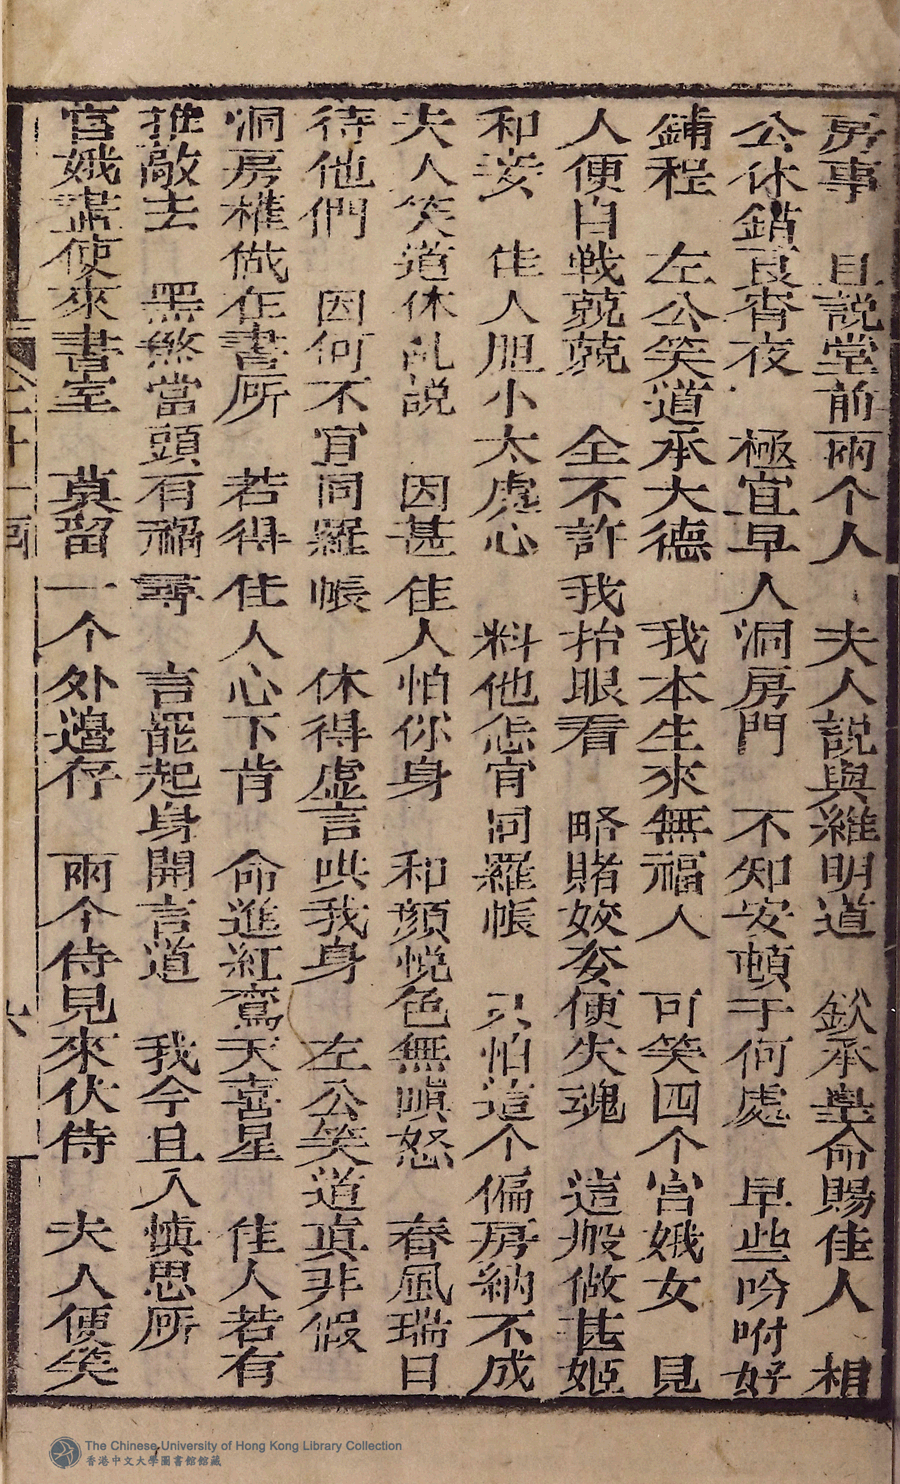 房事　且說堂前兩个人　夫人說與維明道　欽承皇命賜佳人　相
公休錯良宵夜　極宜早人洞房門　不知安頓于何處　早些吩咐好
鋪程　左公笑道承大德　我本生來無福人　可笑四个宮娥女　見
人便自戰兢兢　全不許我抬眼看　略賭姣姿便失魂　這般做甚姬
和妾　佳人胆小太虚心　料他怎肎同羅帳　只怕這个偏房納不成
夫人笑道休乱說　因甚佳人怕你身　和顏悅色無嗔怒　春風瑞日
待他們　因何不宜同羅帳　休得虛言哄我身　左公笑道真非假
洞房權做在書所　若得佳人心下肯　命進紅鸞天喜星　佳人若有
推敲去　黑煞當頭有禍尋　言罷起身開言道　我今且入慎思所
宮娥盡使來書室　莫留一个外邊存　兩个侍見來伏侍　夫人便笑
全廿一囬
六
The Chinese University of Hong Kong Library Collection
香港中文大學圖書館館藏